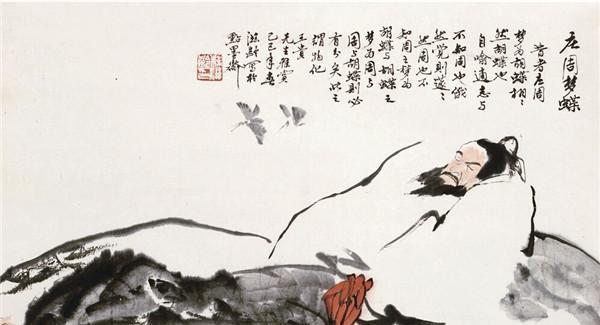 庄周梦蝶
昔者庄周
梦为胡蝶栩〻
然胡蝶也
自喻适志与
不知周也俄
然觉则遽〻
然周也不
知周之梦为
胡蝶与胡蝶之
梦为周与
周与胡蝶则必
有分矣此之
谓物化
先生雅賞
己巳年春
写於
點墨齋